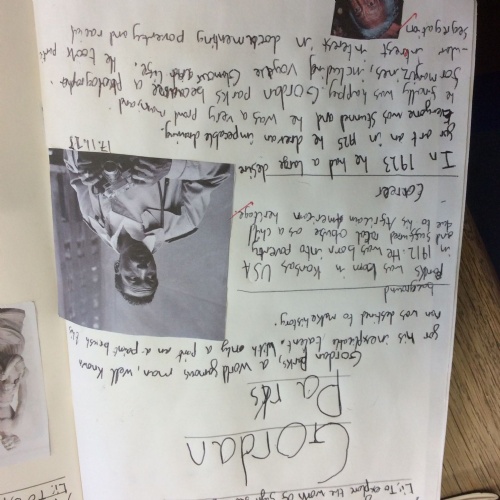 L.I: To explore the work of
Gordan
Parks
Gordan Parks, a world famous man, well known
for his inexplicable talent. With only a pint an a paint brush this
man was destined to make history.
background
Parks was born in Kansas USA
in 1912. He was born into poverty
and suffered rated abuse as a child
due to his African American heritage
- Career
In 1923 he had a large desire
for art an in 1925 he drew an impecable drawing.
17.11.23
Everyone was stunned and he was a very proud man, and
he finally was happy. Gordan parks became a photographer
for magizines including Vogue Glamour and Life. He took parti-
-ular interest interest in documenting poverty and racial
segregation
L.I: To